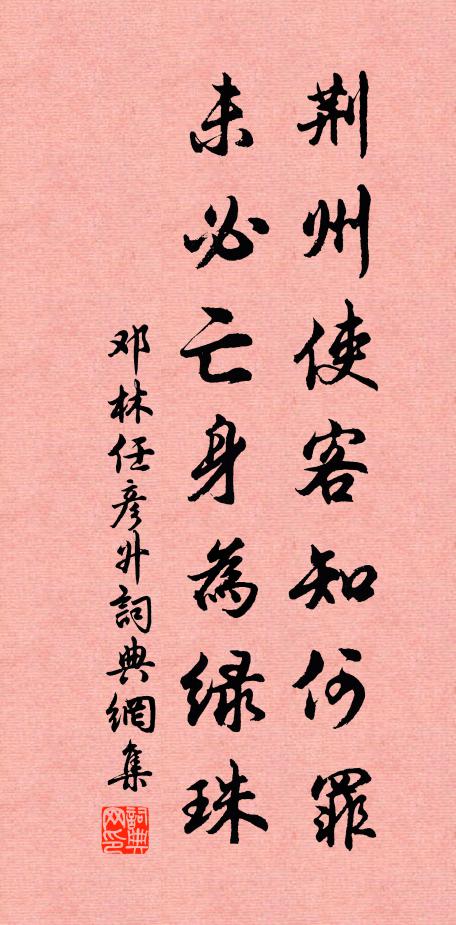 荆州使客知何罪
未必亡身為緑珠
邓林任彦升詞典網集
詞典网印